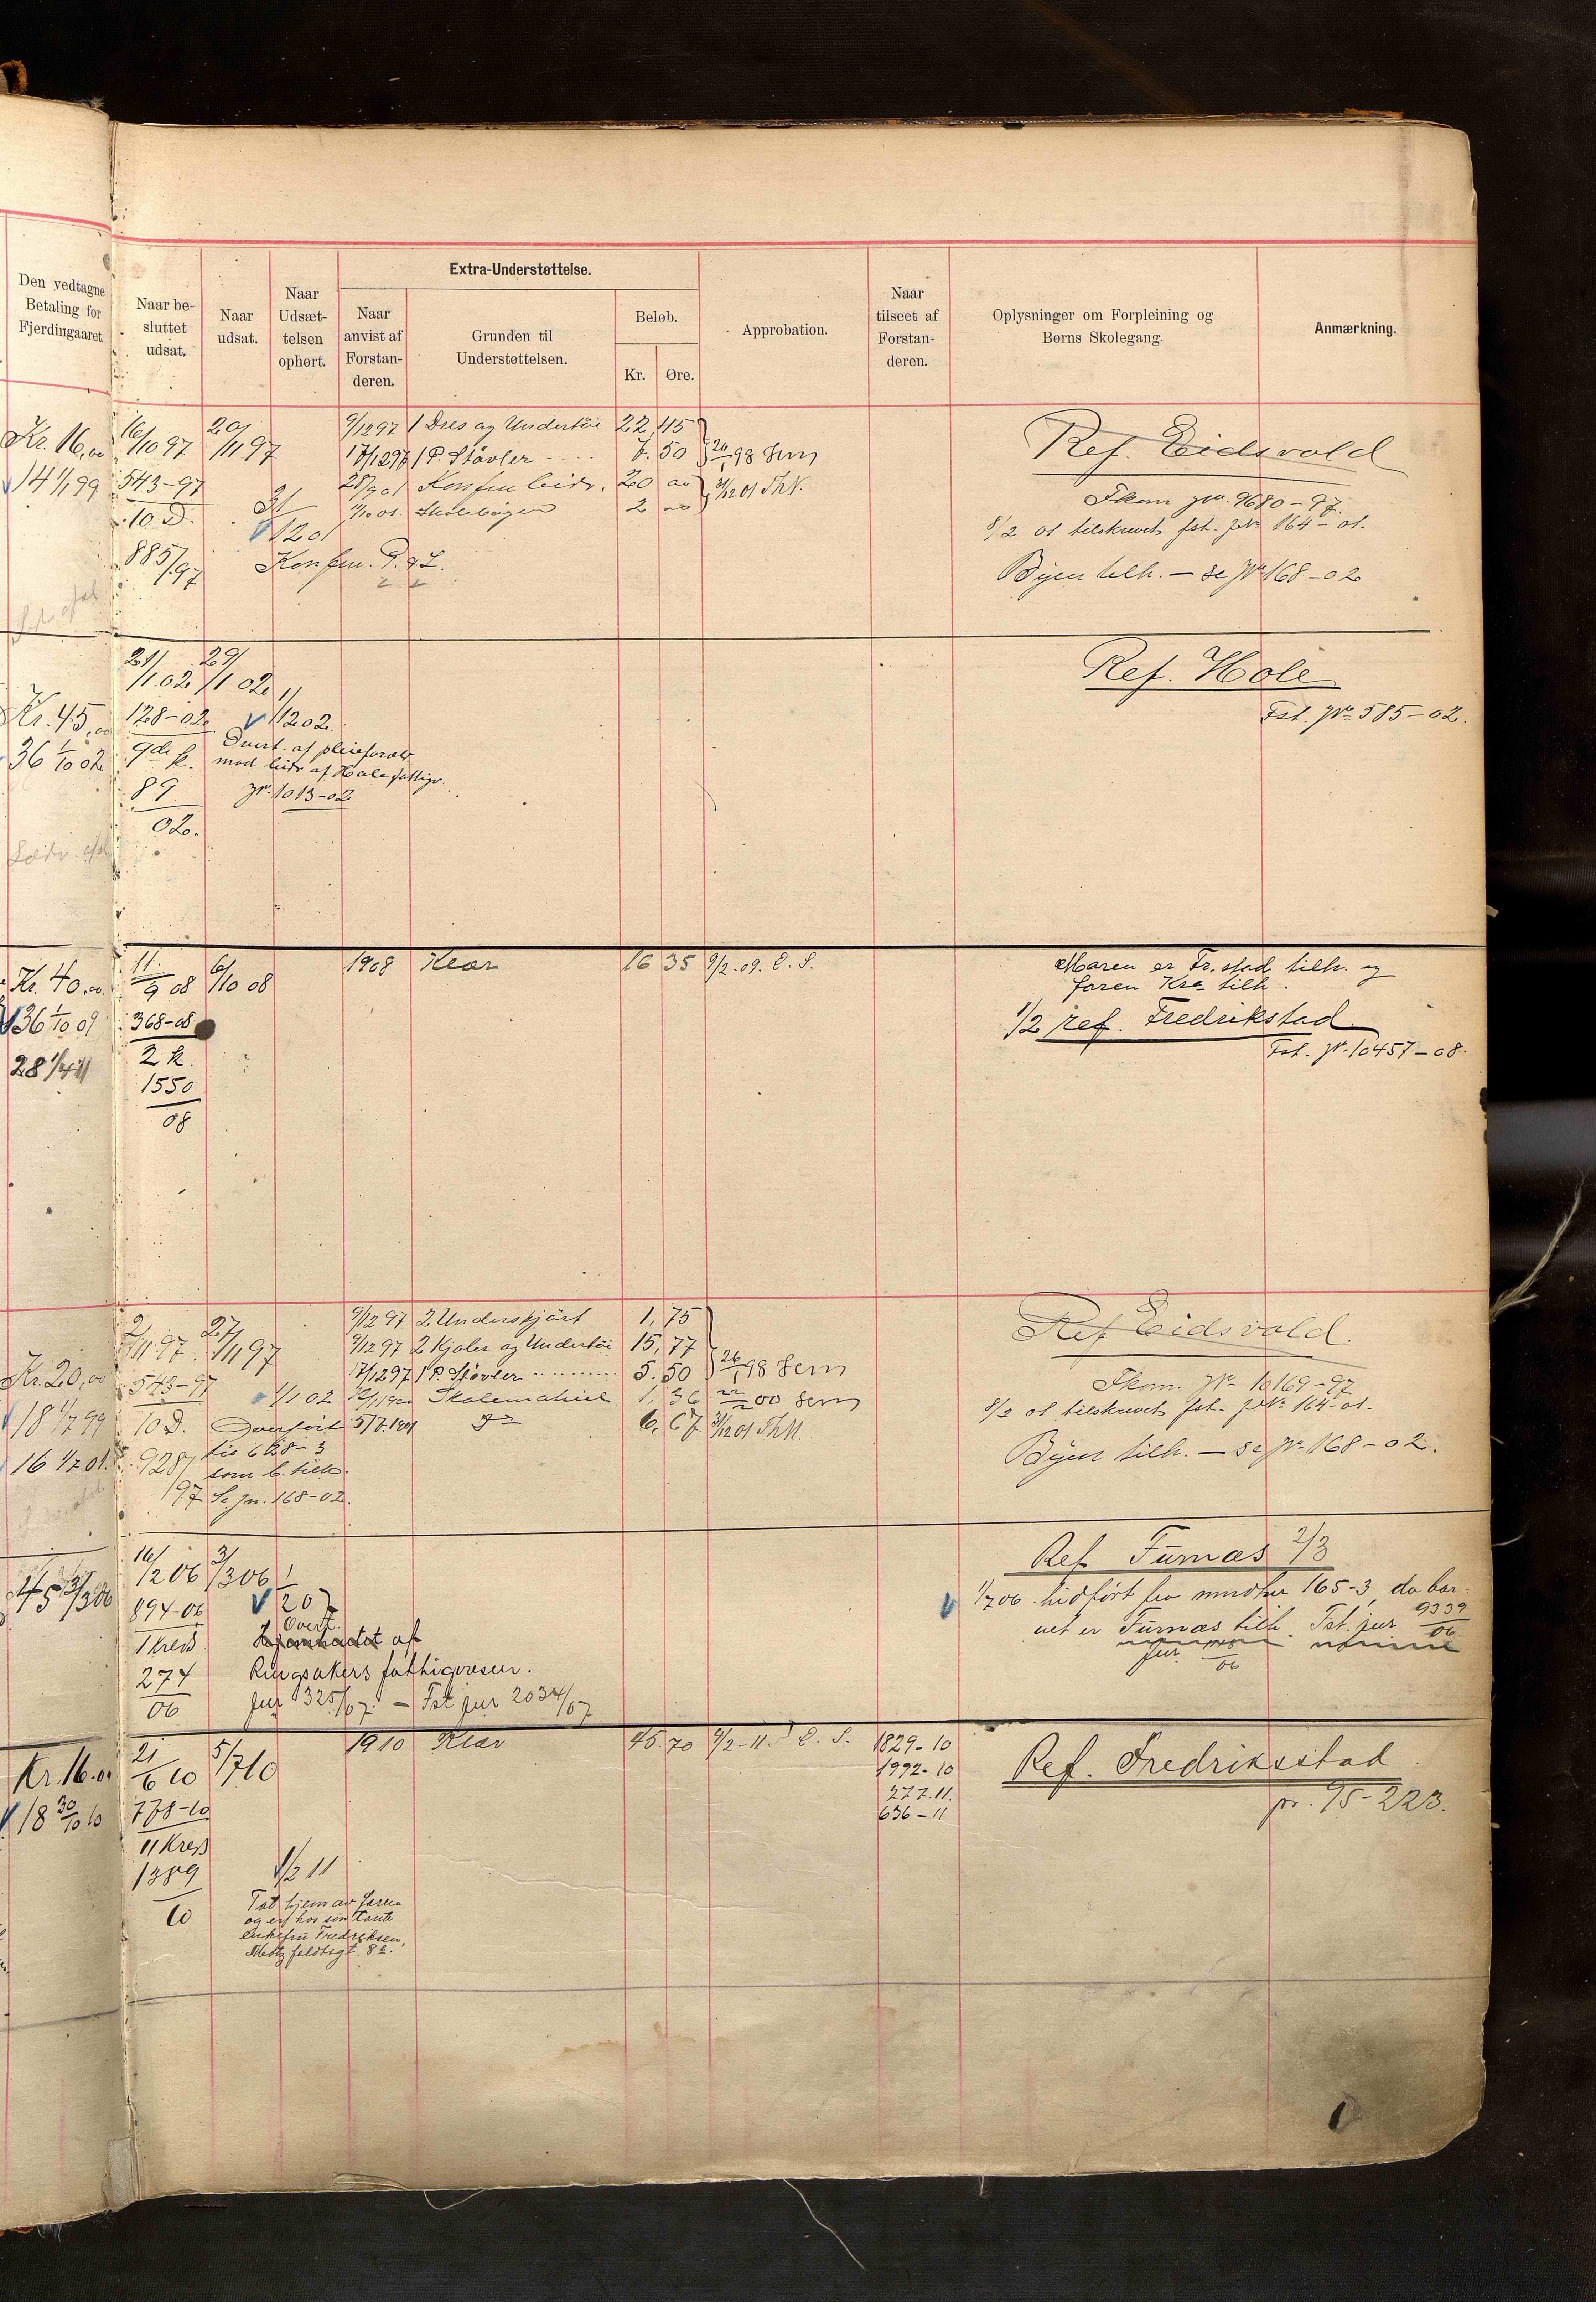 Den vedtagne
Betaling for
Fjerdingaaret.
Naar be-
sluttet
udsat.
Naar
udsat.
Naar
Udsæt-
telsen
ophørt.
Extra-Understøttelse.
Naar
anvist af
Forstan-
deren.
Grunden til
Understøttelsen.
Beløb.
Kr.
Øre.
Approbation.
Naar
tilseet af
Forstan-
deren.
Oplysninger om Forpleining og
Børns Skolegang.
Anmærkning.
Kr. 16,00
14 1/1 99
16/10 97
543-97
10 D.
885/97
20/11 97
31/12 01
Konfm. P. & L.
9/12 97 1 Dres og Undertöi 22,45
17/12 97 1 P. Stövler 7.50
28/9 01 Konfm bidr. 20 00
11/10 01. Skolebøger 2 00
26/1 98 Sem
31/12 01 ThN.
Ref. Eidsvold
Fkom jr. 9680-97.
8/2 01 tilskrevet fst. jr. 164-01.
Byen tilh. - se jr 168-02
Kr. 45,00
36 1/10 02
21/1.02
128-02
9de k.
89
02.
29/1 02
1/12 02.
Overt. af pleieforæld
mod bidr af Hole fattigv.
jr. 1013-02
Ref. Hole
Fst. jr. 585-02.
Kr. 40.00
36 1/10 09
28 1/4 11
11.
/9 08
368-08
2 k.
1550
08
6/10 08
1908 Klær 16 35 9/2.09. C. S.
Maren er Fr.stad tilh. og
faren Kra tilh.
1/2 ref. Fredrikstad.
Fst. jr. 10457-08.
Kr. 20,00
18 1/7 99
16 1/7 01.
2/11 97.
543-97
10 D.
928/97
27/11 97
1/1 02
Overført
til 628-3
som b. tilh.
Se jn. 168-02.
9/12 97 2 Underskjört 1,75
9/12 97 2 Kjoler og Undertöi 15,77
17/12 97 1 P. Stövler 5.50
12/1 1900 Skolematriel 1,36
5/7.1901 do 6,67
26/1 98 Sem
22/2 00 Sem
31/12 01 ThN.
Ref Eidsvold.
Fkom. jr. 10169-97
8/2 01 tilskrevet fst. jr. 164-01.
Byen tilh. - se jr. 168-02.
45 3/3 06
16/2 06
894-06
1 kreds
274
06
3/3 06
1/2 07
Overt.
Hjemhentet af
Ringsakers fattigvæsen.
jur 1325/07. - Fst jur 2034/07
Ref Furnæs 2/3
1/7 06 hidført fra mndtur 165-3, da bar-
net er Furnæs tilh. Fst. jur 9339/06.
jur 06
Kr. 16.00
18 30/10 10
21/6 10
778-10
11 Kreds
1389
10
5/7 10
1/2 11
Tat hjem av faren
og er hos sin tante
enkefru Fredriksen,
Motzfeldtsgt. 8
1910 Klær 45.70 9/2-11. C. S.
1829-10
1992-10
277.11.
636-11
Ref. Fredriksstad.
pr. 95-223.